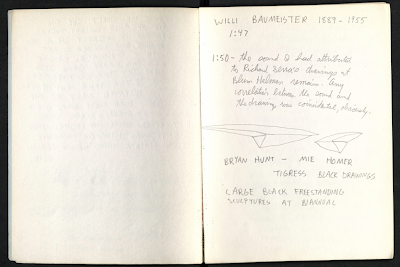 WILLI BAUMEISTER 1889-1955
1:47
1:50 - the sound I had attributed
to Richard Serra's drawings at
Blum Helman remains. Any
correlation between the sound and
the drawings was coincidental, obviously.
BRYAN HUNT - MIE HOMER
TIGRESS BLACK DRAWINGS
LARGE BLACK FREESTANDING
SCULPTURES AT BIANNUAL